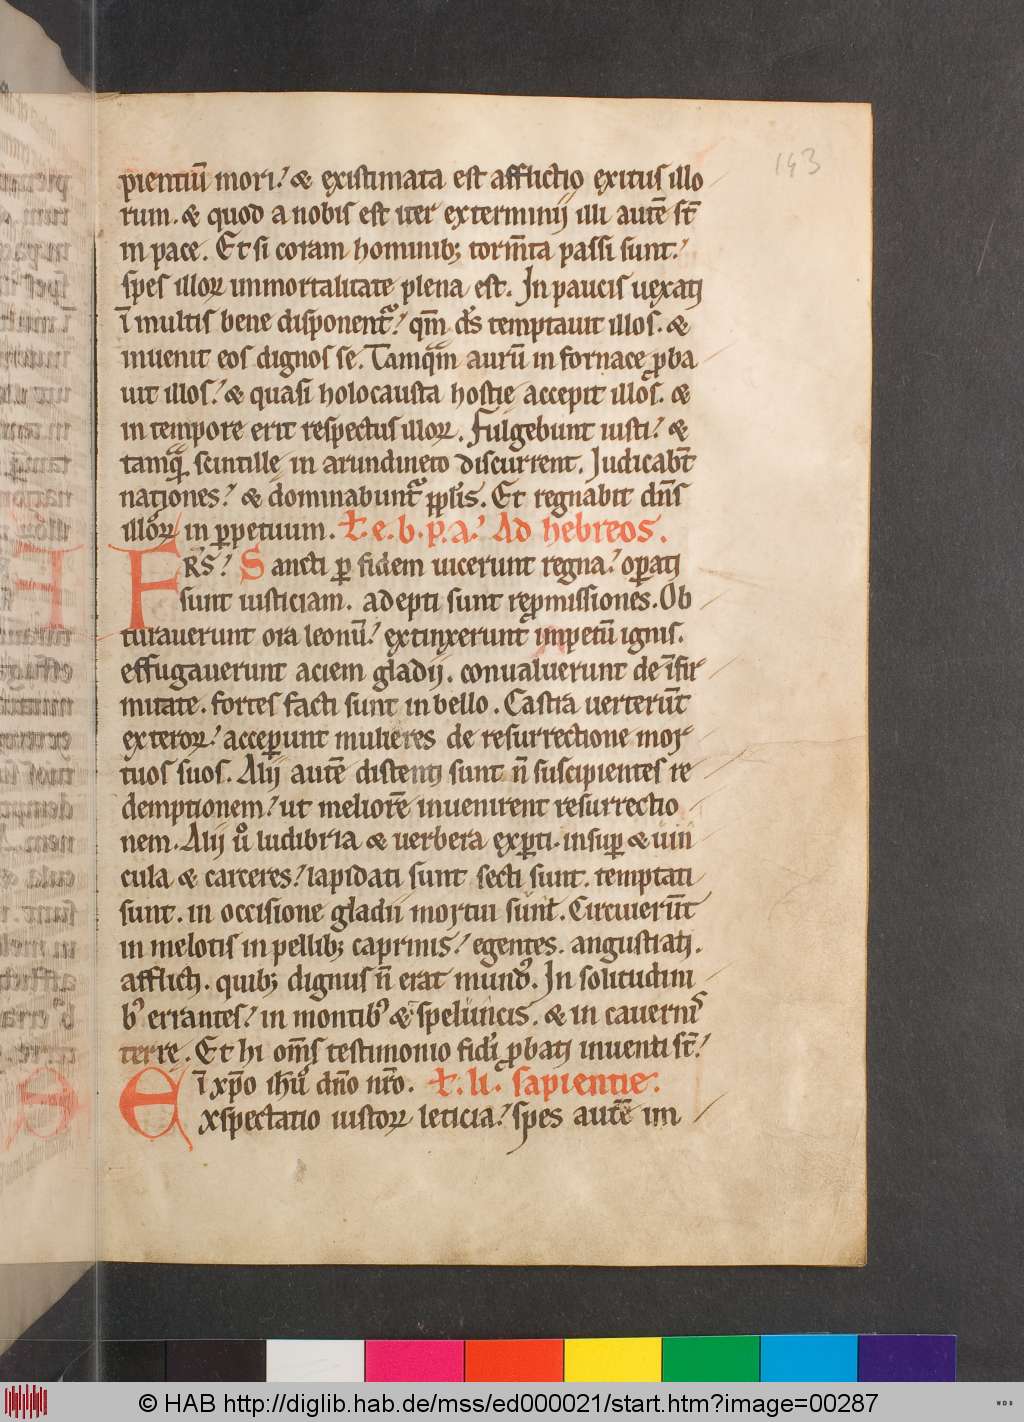 143
pientiū mori. & existimata est afflictio exitus illo
rum. & quod a nobis est iter exterminij illi autē st̄
in pace. Et si coram hominib; torm̄ta passi sunt.
spes illoꝝ immortalitate plena est. In paucis uexati
ī multis bene disponent᷑. qm̄ ds̄ temptauit illos. &
inuenit eos dignos se. Tamqm̄ aurū in fornace ꝓba
uit illos. & quasi holocausta hostię accepit illos. &
in tempore erit respectus illoꝝ. Fulgebunt iusti. &
tamꝗ̄ scintillę in arundineto discurrent. Judicabt̄
nationes. & dominabunt᷑ ppl̄is. Et regnabit dn̄s
illoꝝ in ꝑpetuum. ł. e. b. p. a. Ad hebreos.
FRS̄. Sancti ꝑ fidem uicerunt regna. oꝑati
sunt iusticiam. adepti sunt reꝓmissiones. Ob
turauerunt ora leonū. extinxerunt impetū ignis.
effugauerunt aciem gladij. conualuerunt de īfir
mitate. fortes facti sunt in bello. Castra uerterūt
exteroꝝ. acceꝑunt mulieres de resurrectione mor
tuos suos. Alij autē distenti sunt n̄ suscipientes re
demptionem. ut meliorē inuenirent resurrectio
nem. Alij ůo ludibria & uerbera exꝑti. insuꝑ & uin
cula & carceres. lapidati sunt secti sunt. temptati
sunt. in occisione gladii mortui sunt. Circuierūt
in melotis in pellib; caprinis. egentes. angustiati.
afflicti. quib; dignus n̄ erat mundꝰ. In solitudini
bꝰ errantes. in montibꝰ & speluncis. & in cauernis
terrę. Et hi om̄s testimonio fidei ꝓbati inuenti st̄.
ī xp̄o ih̄u dn̄o nr̄o. ł. li. sapientie.
Exspectatio iustoꝝ leticia. spes autē im
© HAB http://diglib.hab.de/mss/ed000021/start.htm?image=00287